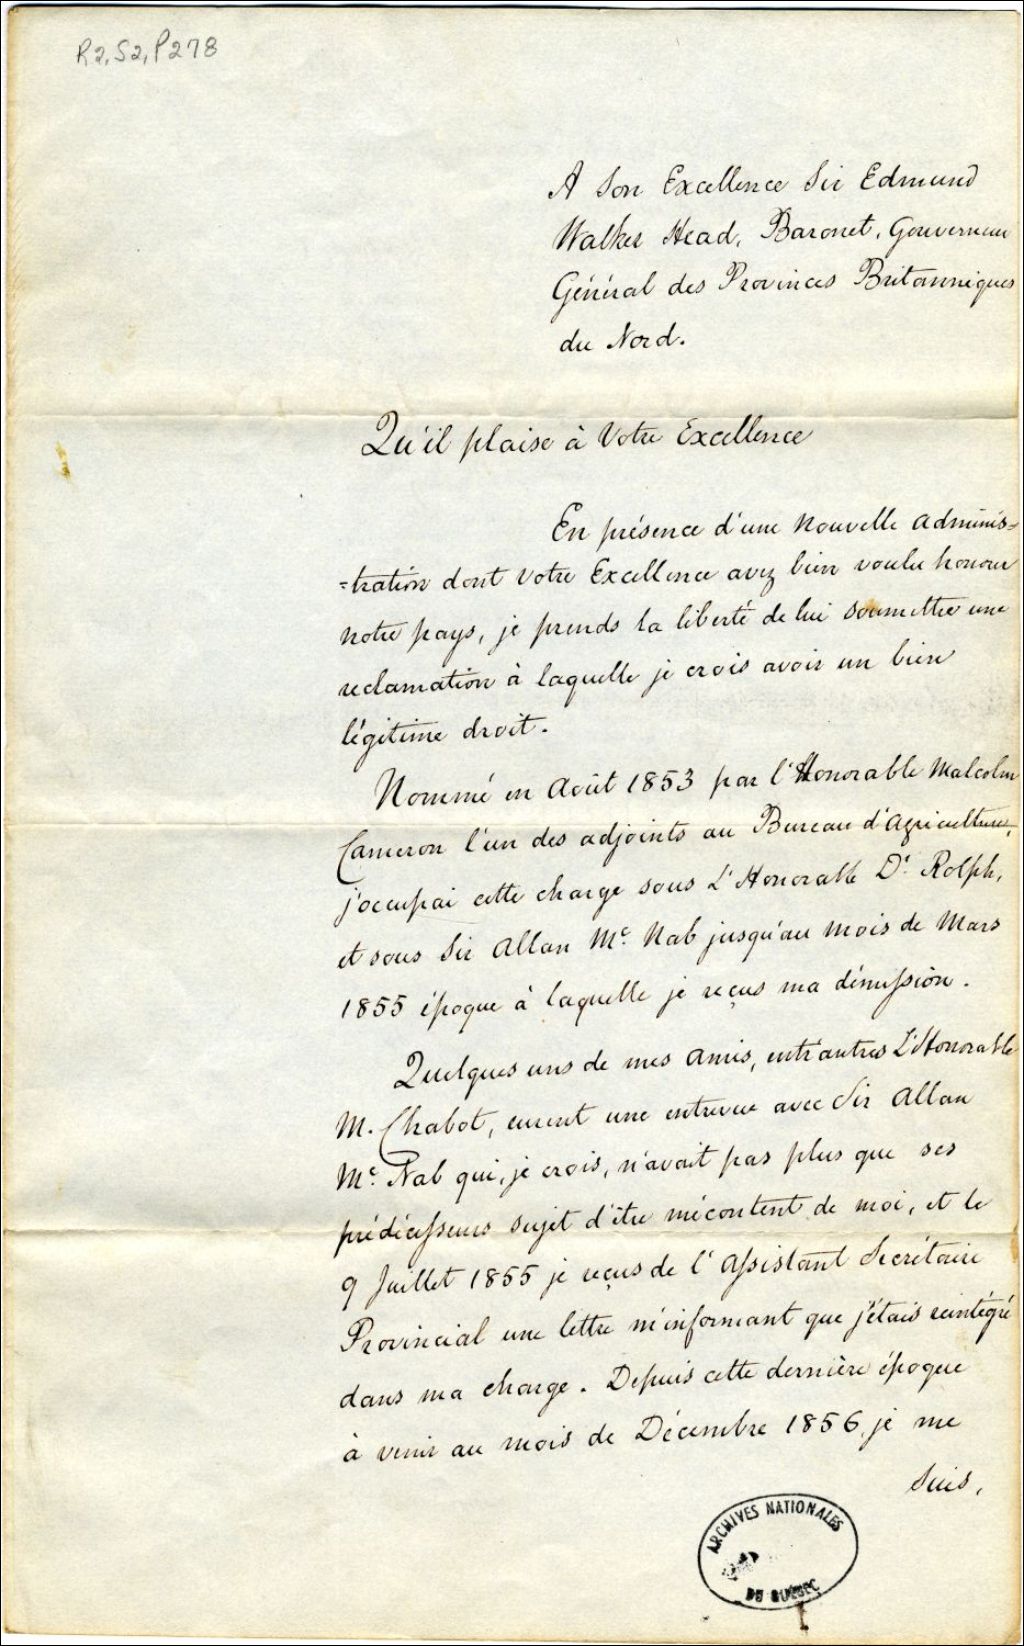 R2,S2,P278
A Son Excellence Sir Edmund
Walker Head, Baronet, Gouverneur
Général des Provinces Britanniques
du Nord.
Qu'il plaise à Votre Excellence
En présence d'une nouvelle adminis=
=tration dont Votre Excellence avez bien voulu honorer
notre pays, je prends la liberté de lui soumettre une
reclamation à laquelle je crois avoir un bien
légitime droit.
Nommé en Août 1853 par l'Honorable Malcolm
Cameron l'un des adjoints au Bureau d'Agriculture,
j'occupai cette charge sous L'Honorable Dr. Rolph,
et sous Sir Allan Mc. Nab jusqu'au mois de Mars
1855 époque à laquelle je reçus ma démission.
Quelques uns de mes amis, entr'autres L'Honorable
M. Chabot, eurent une entrevue avec Sir Allan
Mc. Nab qui, je crois, n'avait pas plus que ses
prédécesseurs sujet d'être mécontent de moi, et le
9 Juillet 1855 je reçus de l'Assistant Secrétaire
Provincial une lettre m'informant que j'étais reintégré
dans ma charge. Depuis cette dernière époque
à venir au mois de Décembre 1856, je me
suis,
ARCHIVES NATIONALES
DU QUÉBEC